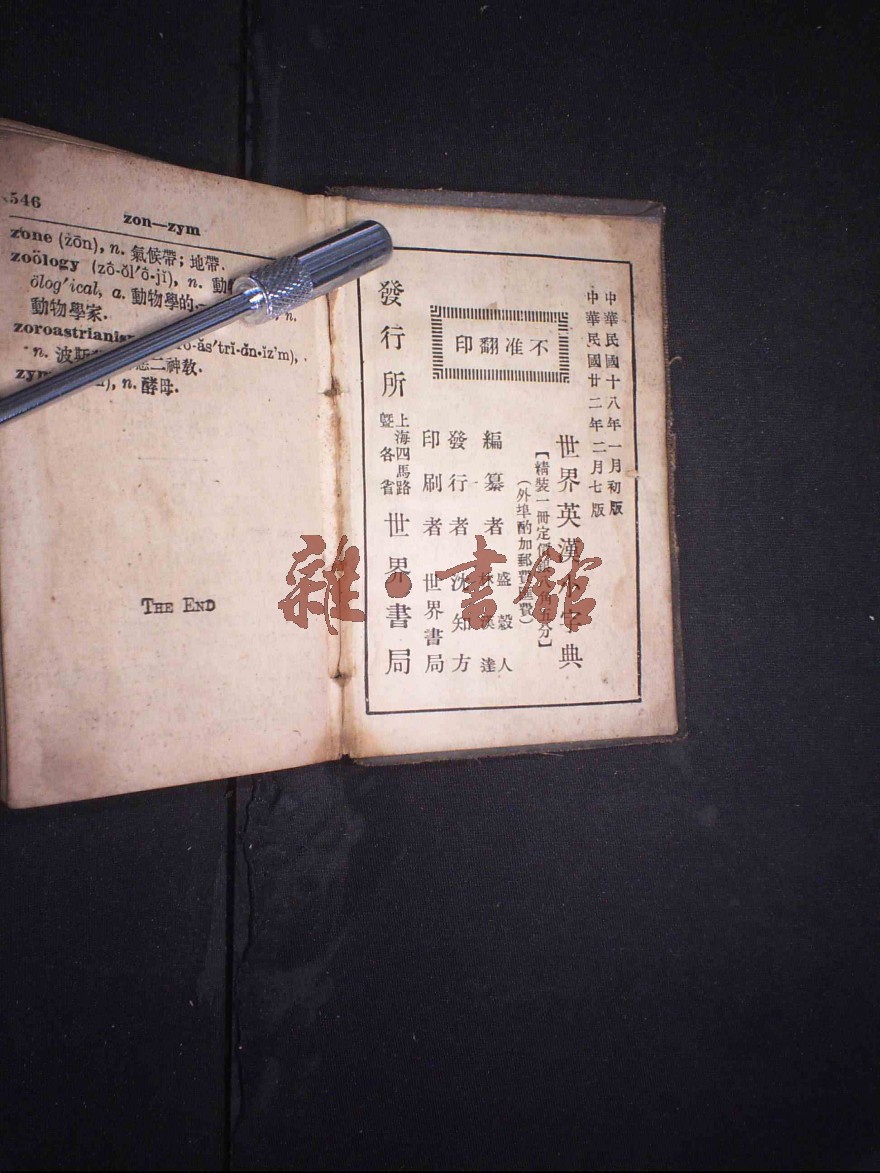 546
zon—zym
zone (zōn), n. 氣候帶；地帶.
zoölogy (zō-ŏl′ō-jĭ), n.
ölog′ical, a. 動物學的.
n.
動物學家.
n. 二神教.
n. 酵母.
THE END
中華民國十八年一月初版
中華民國廿二年二月七版
世界英漢小字典
【精裝一冊定價
分】
（外埠酌加郵費匯費）
不准翻印
編纂者 盛穀人
漢達
發行者 沈知方
印刷者 世界書局
發行所 上海四馬路
暨各省 世界書局
雜·書館